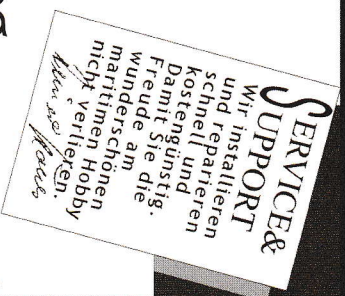 SERVICE&
SUPPORT
Wir installieren
und reparieren
schnell und
kostengünstig.
Damit Sie die
Freude am
wunderschönen
maritimen Hobby
nicht verlieren.